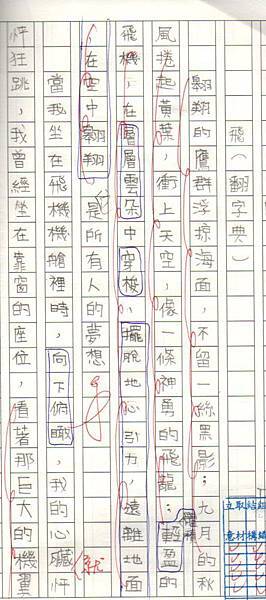 飛(翻字典)
翱翔的鷹群浮掠海面，不留一絲黑影；九月的秋
風捲起黃葉，衝上天空，像一條神勇的飛龍；輕盈的
飛機，在層層雲朵中穿梭，擺脫地心引力，遠離地面
在空中翱翔，是所有人的夢想。
當我坐在飛機機艙裡時，向下俯瞰，我的心臟怦
就
怦狂跳，我曾經坐在靠窗的座位，看著那巨大的機翼
立取結
意材構